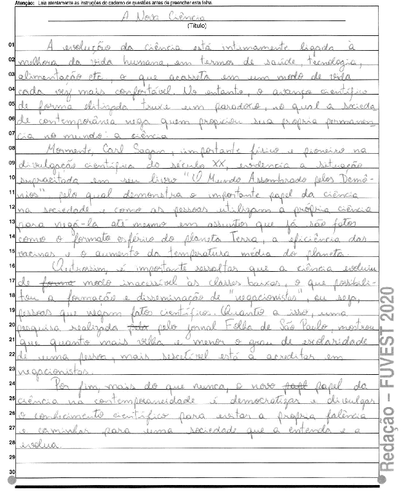 Atenção: Leia atentamente as instruções do caderno de questões antes de preencher esta folha.
A Nova Ciência
(Título)
01 A evolução da ciência está intimamente ligada à
02 melhora da vida humana, em termos de saúde, tecnologia,
03 alimentação etc, o que acarreta em um modo de vida
04 cada vez mais confortável. No entanto, o avanço científico
05 de forma elitizada trouxe um paradoxo, no qual a socieda-
06 de contemporânea nega quem propiciou sua própria permanên-
07 cia no mundo: a ciência.
08 Mormente, Carl Sagan, importante físico e pioneiro na
09 divulgação científica do século XX, evidencia a situação
10 supracitada em seu livro "O Mundo Assombrado pelos Demô-
11 nios" pelo qual demonstra o importante papel da ciência
12 na sociedade e como as pessoas utilizam a própria ciência
13 para negá-la até mesmo em assuntos que já são fatos
14 como o formato esférico do planeta Terra, a eficiência das
15 vacinas e o aumento da temperatura média do planeta.
16 Outrossim, é importante ressaltar que a ciência evoluiu
17 de modo inacessível às classes baixas, o que possibili-
18 tou a formação e disseminação de "negacionistas", ou seja,
19 pessoas que negam fatos científicos. Quanto a isso, uma
20 pesquisa realizada pelo jornal Folha de São Paulo, mostrou
21 que quanto mais velha e menor o grau de escolaridade
22 de uma pessoa, mais suscetível está a acreditar em
23 negacionistas.
24 Por fim, mais do que nunca, o novo papel da
25 ciência na contemporaneidade é democratizar e divulgar
26 o conhecimento científico para evitar a própria falência
27 e caminhar para uma sociedade que a entenda e a
28 evolua.
29
30
Redação – FUVEST 2020